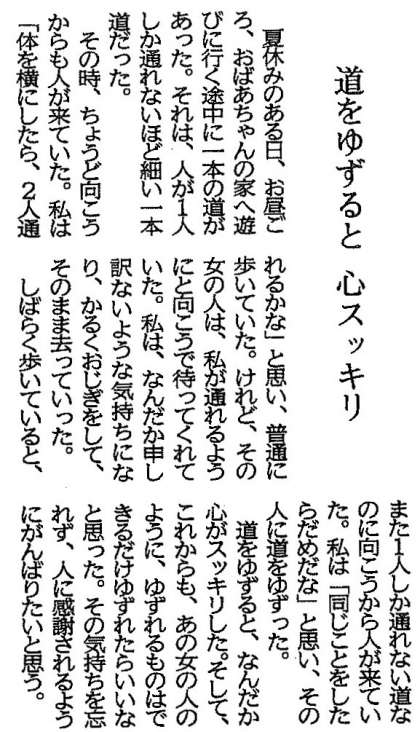 道をゆずると 心スッキリ
夏休みのある日、お昼ご
ろ、おばあちゃんの家へ遊
びに行く途中に一本の道が
あった。それは、人が1人
しか通れないほど細い一本
道だった。
その時、ちょうど向こう
からも人が来ていた。私は
「体を横にしたら、2人通
れるかな」と思い、普通に
歩いていた。けれど、その
女の人は、私が通れるよう
にと向こうで待ってくれて
いた。私は、なんだか申し
訳ないような気持ちにな
り、かるくおじぎをして、
そのまま去っていった。
しばらく歩いていると、
また1人しか通れない道な
のに向こうから人が来てい
た。私は「同じことをした
らだめだな」と思い、その
人に道をゆずった。
道をゆずると、なんだか
心がスッキリした。そして、
これからも、あの女の人の
ように、ゆずれるものはで
きるだけゆずれたらいいな
と思った。その気持ちを忘
れず、人に感謝されるよう
にがんばりたいと思う。